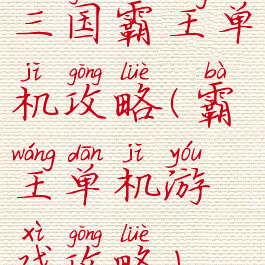 三国霸王单
jī gōng lüè bà
机攻略(霸
wáng dān jī yóu
王单机游
xì gōng lüè
戏攻略)